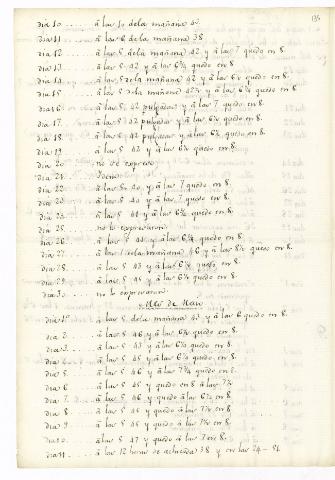 dia 10 ...... á las 10 dela mañana 42.
dia 11 ...... á las 6 dela mañana 38
dia 12 ...... á las 5 dela mañana 42 y á las 7 quedo en 8.
dia 13 ...... á las 5. 42 y á las 6¾ quedo en 8.
dia 14 ...... á las 5 dela mañana 42 y á las 6½ quedo en 8.
dia 15 ...... á las 5 dela mañana 42½ y á las 6¾ quedo en 8
dia 16 ...... á las 5. 42 pulgadas y á las 7 quedo en 8.
dia 17. ..... á las 5 42 pulgadas y á las 6¾ quedo en 8.
dia 18 ...... á las 5. 42 pulgadas y á las 6¾ quedo en 8.
dia 19 ...... á las 5 42 y á las 6½ quedo en 8.
dia 20 ...... no se expreso
dia 21. ..... Idem.
dia 22 ...... á las 5. 40 y á las 7 quedo en 8.
dia 23 ...... á las 5 40 y á las 7 quedo en 8.
dia 24 ...... á las 5 41 y á las 6¾ quedo en 8.
dia 25. ..... no lo expresaron
dia 26. ..... á las 5 41 y á las 6¾ quedo en 8.
dia 27. ..... á las 1 dela mañana 46 y á las 8½ quedo en 8.
dia 28. ..... á las 5 43 y á las 6¾ quedo en 8.
dia 29. ..... á las 5 45 y á las 6¾ quedo en 8.
dia 30. ..... no lo expresaron
Mes de
dia 1º ...... á las 5 dela mañana 43 y á las 6 quedo en 8.
dia 2. ...... á las 5 46 y á las 6¾ quedo en 8.
dia 3. ...... á las 5 43 y á las 6¾ quedo en 8.
dia 4. ...... á las 5 45 y á las 6¾ quedo en 8.
dia 5. ...... á las 5 46 y á las 7¾ quedo en 8.
dia 6 ...... á las 5 45 y quedo en 8 á las 7½
dia 7. ...... á las 5. 46 y quedo á las 6¾ en 8.
dia 8 ...... á las 5 45 y quedo á las 7½ en 8.
dia 9 ...... á las 5 45 y quedo á las 7¾ en 8.
dia 10. ..... á las 5 47 y quedo á las 7 en 8.
dia 11. ..... á las 12 horas de 38 y en las 24 - 51